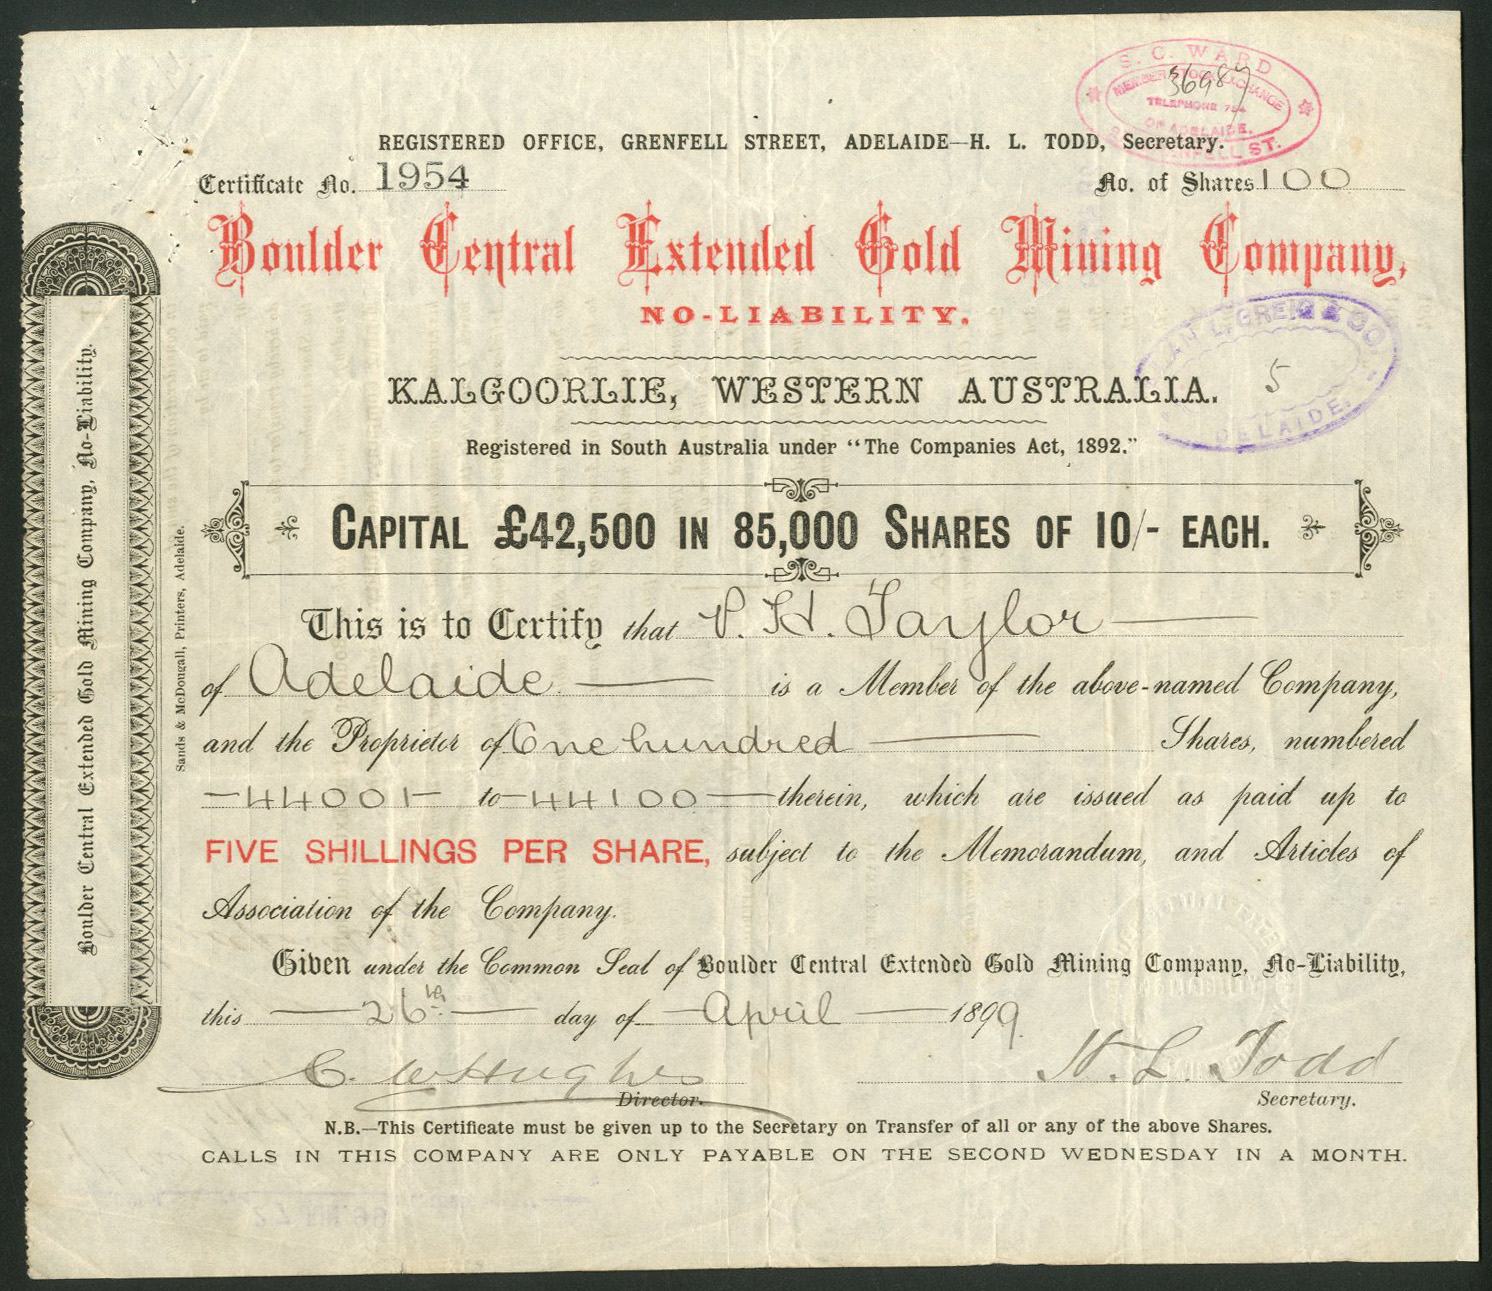 S. C. WARD
MEMBER STOCK EXCHANGE
36987
TELEPHONE 754
OF ADELAIDE.
ST.
REGISTERED OFFICE, GRENFELL STREET, ADELAIDE—H. L. TODD, Secretary.
Certificate No. 1954
No. of Shares 100
Boulder Central Extended Gold Mining Company,
NO-LIABILITY.
L. GREIG & CO.
ADELAIDE.
5
KALGOORLIE, WESTERN AUSTRALIA.
Registered in South Australia under "The Companies Act, 1892."
CAPITAL £42,500 IN 85,000 SHARES OF 10/- EACH.
This is to Certify that P. H. Taylor
of Adelaide is a Member of the above-named Company,
and the Proprietor of One hundred Shares, numbered
44001 to 44100 therein, which are issued as paid up to
FIVE SHILLINGS PER SHARE, subject to the Memorandum, and Articles of
Association of the Company.
Given under the Common Seal of Boulder Central Extended Gold Mining Company, No-Liability,
this 26th day of April 1899.
C. W Hughes
Director.
H. L. Todd
Secretary.
N.B.—This Certificate must be given up to the Secretary on Transfer of all or any of the above Shares.
CALLS IN THIS COMPANY ARE ONLY PAYABLE ON THE SECOND WEDNESDAY IN A MONTH.
Boulder Central Extended Gold Mining Company, No-Liability.
Sands & McDougall, Printers, Adelaide.